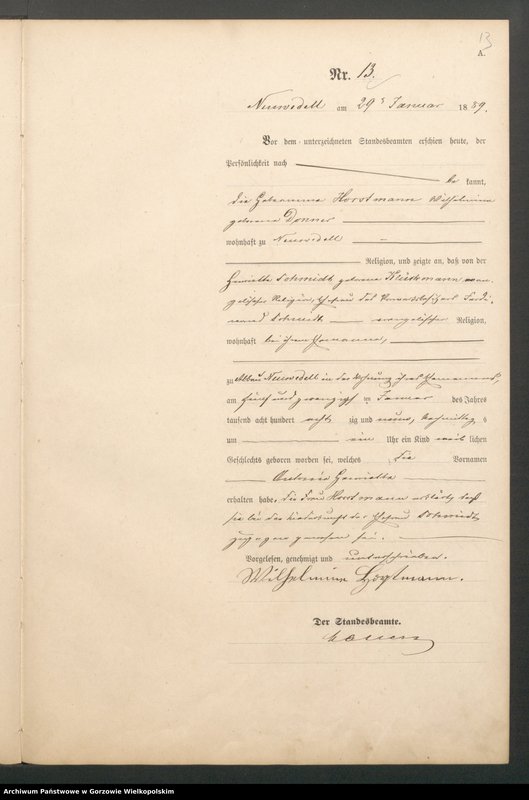 13
A.
Nr. 13.
Neuwedell am 29 Januar 1889.
Vor dem unterzeichneten Standesbeamten erschien heute, der
Persönlichkeit nach
be kannt,
die Hebamme Horstmann Wilhelmine
geborene Donner
wohnhaft zu Neuwedell
Religion, und zeigte an, daß von der
Henriette Schmidt geborene evan-
gelischer Religion, Ehefrau des Ferdi-
nand Schmidt evangelischer Religion,
wohnhaft bei ihrem Ehemanne,
zu Abbau Neuwedell in der Wohnung ihres Ehemannes,
am fünf und zwanzigst en Januar des Jahres
tausend acht hundert acht zig und neun, Nachmittag s
um ein Uhr ein Kind weib lichen
Geschlechts geboren worden sei, welches die Vornamen
Henriette
erhalten habe. Die Frau Horstmann erklärte, daß
sie bei der Niederkunft der Ehefrau Schmidt
zugegen gewesen sei.
Vorgelesen, genehmigt und unterschrieben.
Wilhelmine Horstmann.
Der Standesbeamte.
Archiwum Państwowe w Gorzowie Wielkopolskim